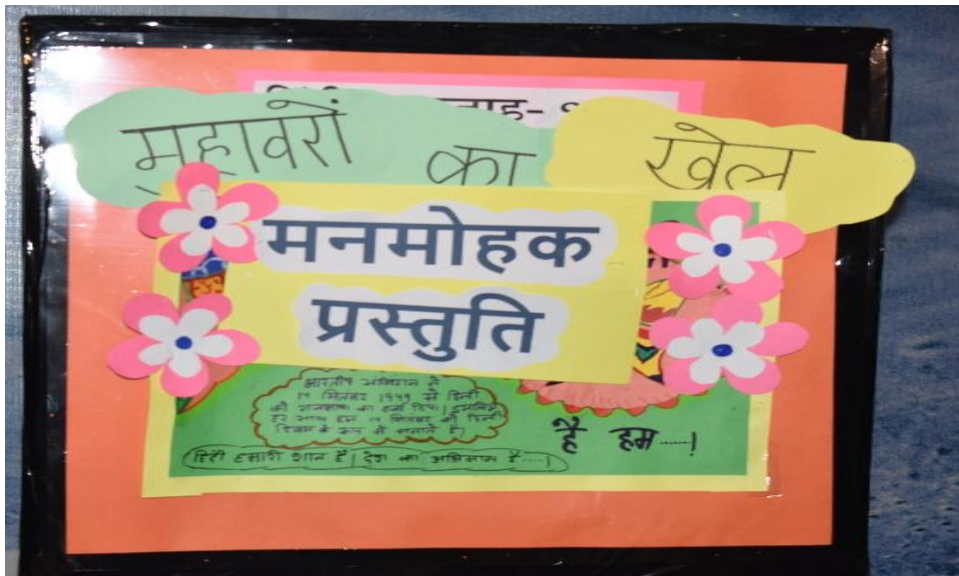 मुहावरों का खेल
मनमोहक
प्रस्तुति
भारतीय संविधान ने
१४ सितंबर १९४९ से हिन्दी
को राजभाषा का दर्जा दिया। इसलिए
हर साल हम १४ सितंबर को हिन्दी
दिवस के रूप में मनाते है।
हैं हम.....!
हिंदी हमारी शान है। देश का अभिमान है....।